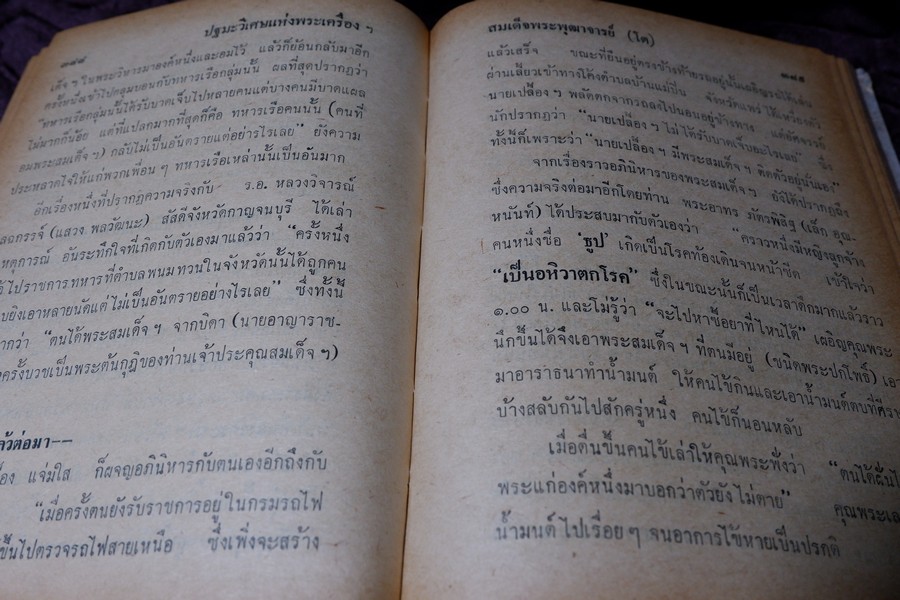 ๓๘๔ ปฐมะวิเศษแห่งพระเครื่อง ฯ
เด็จ ฯ ในพระวิหารมาองค์หนึ่งและอมไว้ แล้วก็ย้อนกลับมาอีก
ครั้งหนึ่งเข้าไปคลุกบอนกับทหารเรือกลุ่มนั้น ผลที่สุดปรากฏว่า
"ทหารเรือกลุ่มนั้นได้รับบาดเจ็บไปหลายคนแต่บางคนมีบาดแผล
ไม่มากก็น้อย แต่ที่แปลกมากที่สุดก็คือ ทหารเรือคนนั้น (คนที่
อมพระสมเด็จ ฯ) กลับไม่เป็นอันตรายแต่อย่างไรเลย" ยังความ
ประหลาดใจให้แก่พวกเพื่อน ๆ ทหารเรือเหล่านั้นเป็นอันมาก
อีกเรื่องหนึ่งที่ปรากฏความจริงกับ ร.อ. หลวงวิจารณ์
สฉกรรจ์ (แสวง พลวัฒนะ) สัสดีจังหวัดกาญจนบุรี ได้เล่า
เหตุการณ์ อันระทึกใจที่เกิดกับตัวเองมาแล้วว่า "ครั้งหนึ่ง
ไปราชการทหารที่ตำบลพนมทวนในจังหวัดนั้นได้ถูกคน
บยิงเอาหลายนัดแต่ไม่เป็นอันตรายอย่างไรเลย" ซึ่งทั้งนี้
ากว่า "ตนได้พระสมเด็จ ฯ จากบิดา (นายอาญาราช-
ครั้งบวชเป็นพระต้นกุฏิของท่านเจ้าประคุณสมเด็จ ฯ)
ล้วต่อมา--
อง แจ่มใส ก็ผจญอภินิหารกับตนเองอีกถึงกับ
"เมื่อครั้งตนยังรับราชการอยู่ในกรมรถไฟ
ขึ้นไปตรวจรถไฟสายเหนือ ซึ่งเพิ่งจะสร้าง
สมเด็จพระพุฒาจารย์ (โต) ๓๘๕
แล้วเสร็จ ขณะที่ยืนอยู่ตรงข้างท้ายรถอยู่นั้นเผอิญรถได้แล่น
ผ่านเลี้ยวเข้าทางโค้งตำบลบ้านแม่ปิน จังหวัดแพร่ ได้เหวี่ยงตัว
นายเปลื้อง ฯ พลัดตกจากรถลงไปนอนอยู่ข้างทาง แต่อัศจรรย์
นักปรากฏว่า "นายเปลื้อง ฯ ไม่ได้รับบาดเจ็บอะไรเลย" ซึ่ง
ทั้งนี้ก็เพราะว่า "นายเปลื้อง ฯ มีพระสมเด็จ ฯ ติดตัวอยู่นั่นเอง"
จากเรื่องราวอภินิหารของพระสมเด็จ ฯ ยังได้ปรากฏถึง
ซึ่งความจริงต่อมาอีกโดยท่าน พระอาทร ภัทรพิธิฐ (เล็ก อุณ-
หนันท์) ได้ประสบมากับตัวเองว่า "คราวหนึ่งมีหญิงลูกจ้าง
คนหนึ่งชื่อ 'ธูป' เกิดเป็นโรคท้องเดินจนหน้าซีด เข้าใจว่า
"เป็นอหิวาตกโรค" ซึ่งในขณะนั้นก็เป็นเวลาดึกมากแล้วราว
๑.๐๐ น. และไม่รู้ว่า "จะไปหาซื้อยาที่ไหนได้" เผอิญคุณพระ
นึกขึ้นได้จึงเอาพระสมเด็จ ฯ ที่ตนมีอยู่ (ชนิดพระปกโพธิ์) เอา
มาอาราธนาทำน้ำมนต์ ให้คนไข้กินและเอาน้ำมนต์ตบที่ศีรษ
บ้างสลับกันไปสักครู่หนึ่ง คนไข้ก็นอนหลับ
เมื่อตื่นขึ้นคนไข้เล่าให้คุณพระฟังว่า "ตนได้ฝันไ
พระแก่องค์หนึ่งมาบอกว่าตัวยังไม่ตาย" คุณพระเอ
น้ำมนต์ไปเรื่อย ๆ จนอาการไข้หายเป็นปรกติ